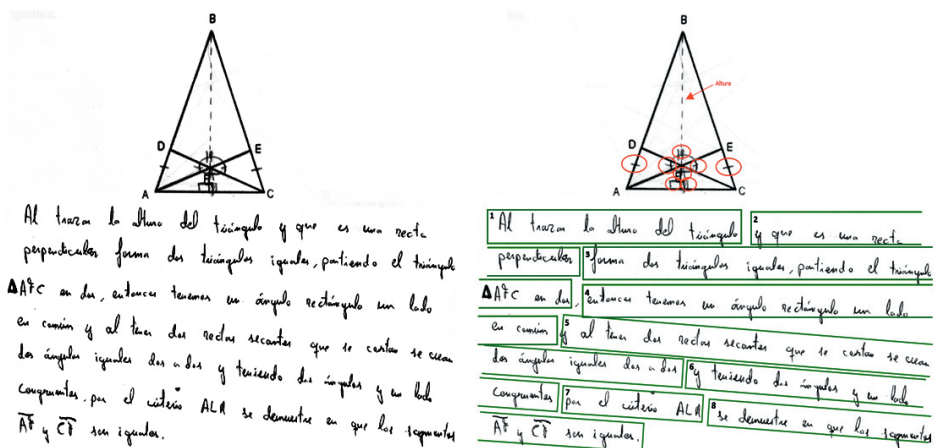 B
D
E
A
C
Al trazar la altura del triángulo y que es una recta
perpendicular forma dos triángulos iguales, partiendo el triángulo
ΔAFC en dos, entonces tenemos un ángulo rectángulo un lado
en común y al tener dos rectas secantes que se cortan se crean
dos ángulos iguales dos a dos y teniendo dos ángulos y un lado
congruentes, por el criterio ALA se demuestra en que los segmentos
AF y CF son iguales.
B
Altura
D
E
A
C
1 Al trazar la altura del triángulo 2 y que es una recta
perpendicular 3 forma dos triángulos iguales, partiendo el triángulo
ΔAFC en dos, 4 entonces tenemos un ángulo rectángulo un lado
en común 5 y al tener dos rectas secantes que se cortan se crean
dos ángulos iguales dos a dos 6 y teniendo dos ángulos y un lado
congruentes, 7 por el criterio ALA 8 se demuestra en que los segmentos
AF y CF son iguales.